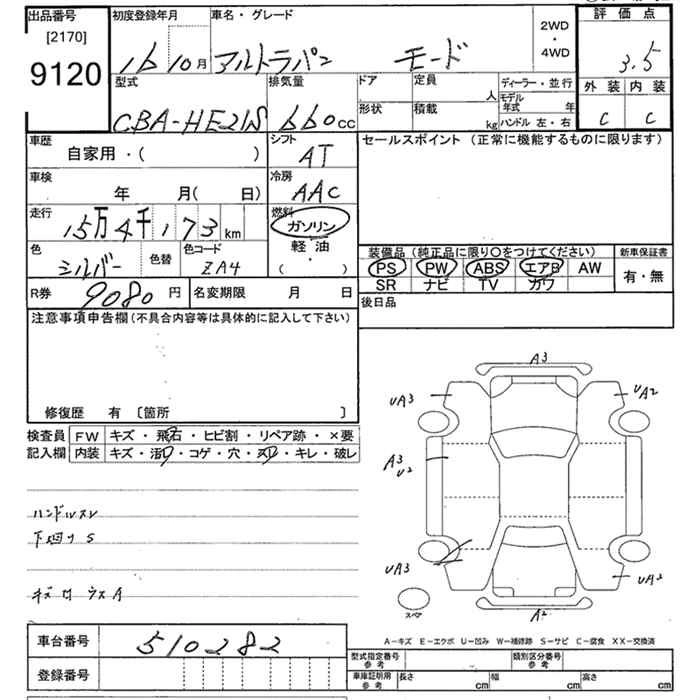 出品番号 [2170] 9120
初度登録年月 16 10月
車名・グレード アルトラパン モード
2WD・4WD
評価点 3.5
型式 CBA-HE21S
排気量 660cc
ドア 定員 人
形状 積載 kg
ディーラー・並行
モデル年式 年
ハンドル 左・右
外装 内装
C C
車歴 自家用・( )
シフト AT
セールスポイント (正常に機能するものに限ります)
車検 年 月( 日)
冷房 AAC
走行 15万4千173km
燃料 ガソリン 軽・油 ( )
色 シルバー 色替 色コード ZA4
装備品(純正品に限り○をつけてください)
新車保証書
PS PW ABS エアB AW
有・無
SR ナビ TV カワ
R券 9080円 名変期限 月 日
後日品
注意事項申告欄(不具合内容等は具体的に記入して下さい)
修復歴 有 〔箇所 〕
検査員記入欄
FW キズ・飛石・ヒビ割・リペア跡・×要
内装 キズ・汚レ・コゲ・穴・スレ・キレ・破レ
ハンドルスレ
下回りS
A3
UA3
UA2
A3
U2
UA3
UA3
A2
スペア
A-キズ E-エクボ U-凹み W-補修跡 S-サビ C-腐食 XX-交換済
車台番号 510282
登録番号
型式指定番号 参考
類別区分番号 参考
車庫証明用 参考 長さ cm 幅 cm 高さ cm